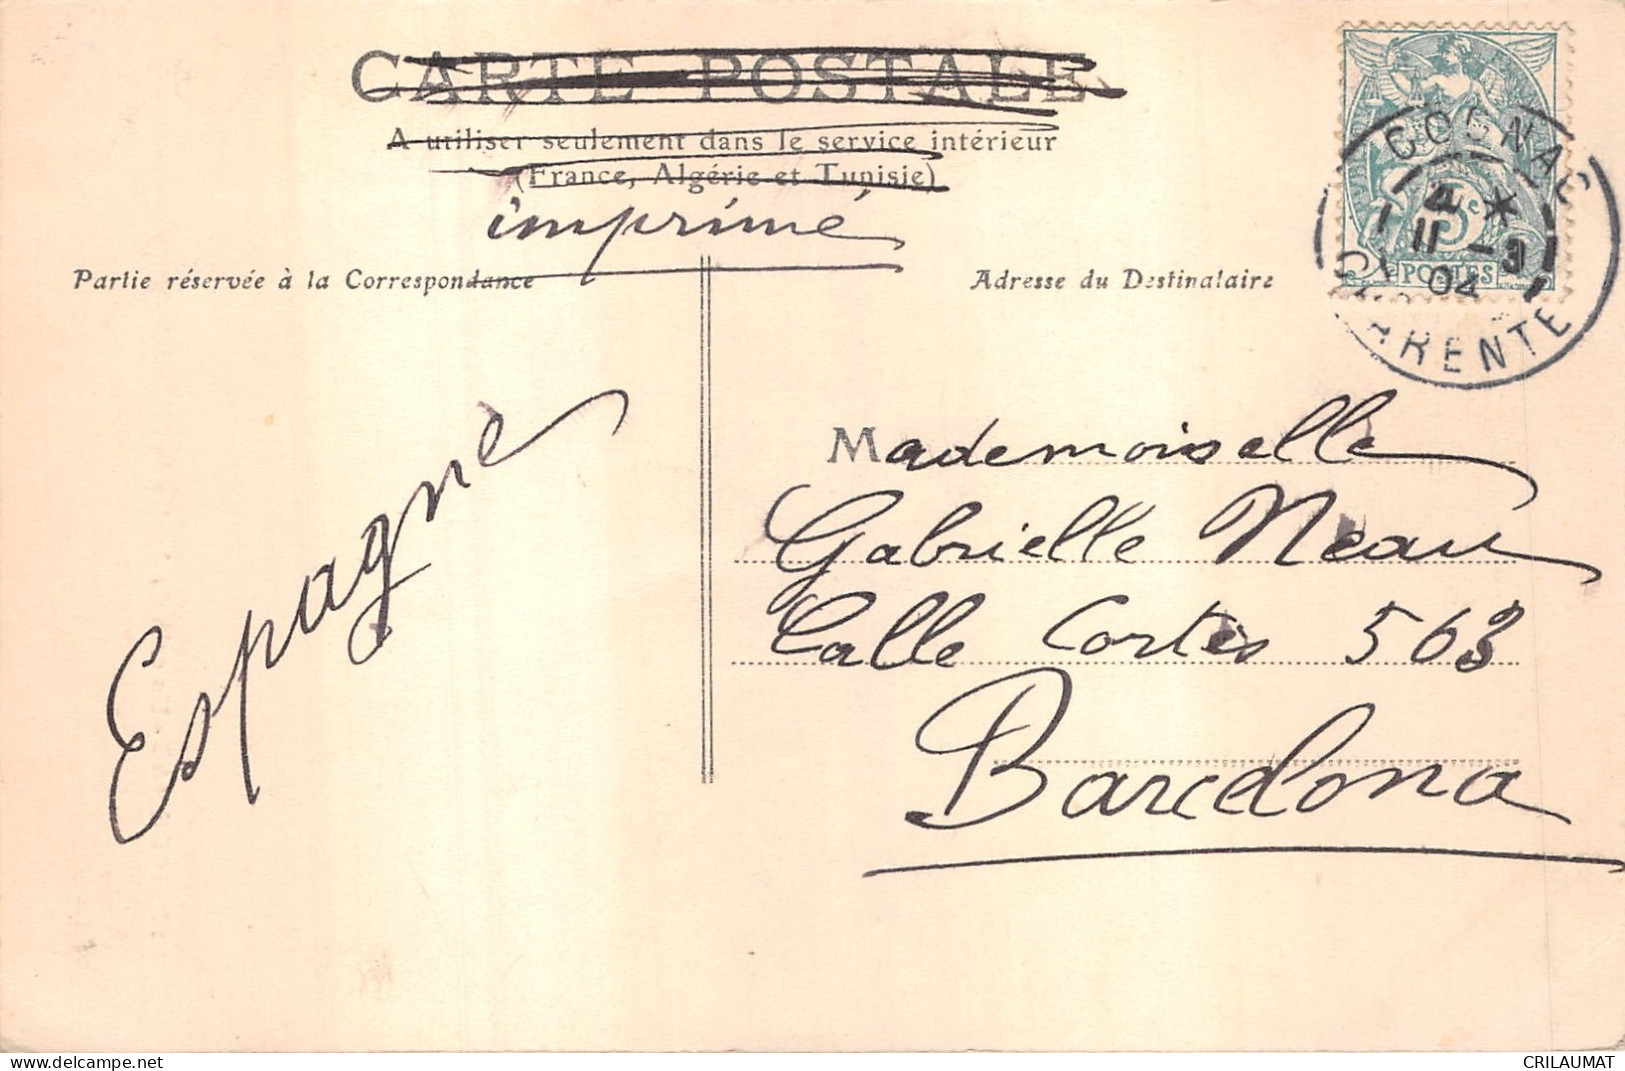 CARTE POSTALE
A utiliser seulement dans le service intérieur
(France, Algérie et Tunisie)
imprimé
Partie réservée à la Correspondance
Adresse du Destinataire
COGNAC
4 *
11 -3
04
CHARENTE
5c
POSTES
Espagne
Mademoiselle
Gabrielle Neau
Calle Cortès 563
Barcelona
https://www.delcampe.net
CRILAUMAT